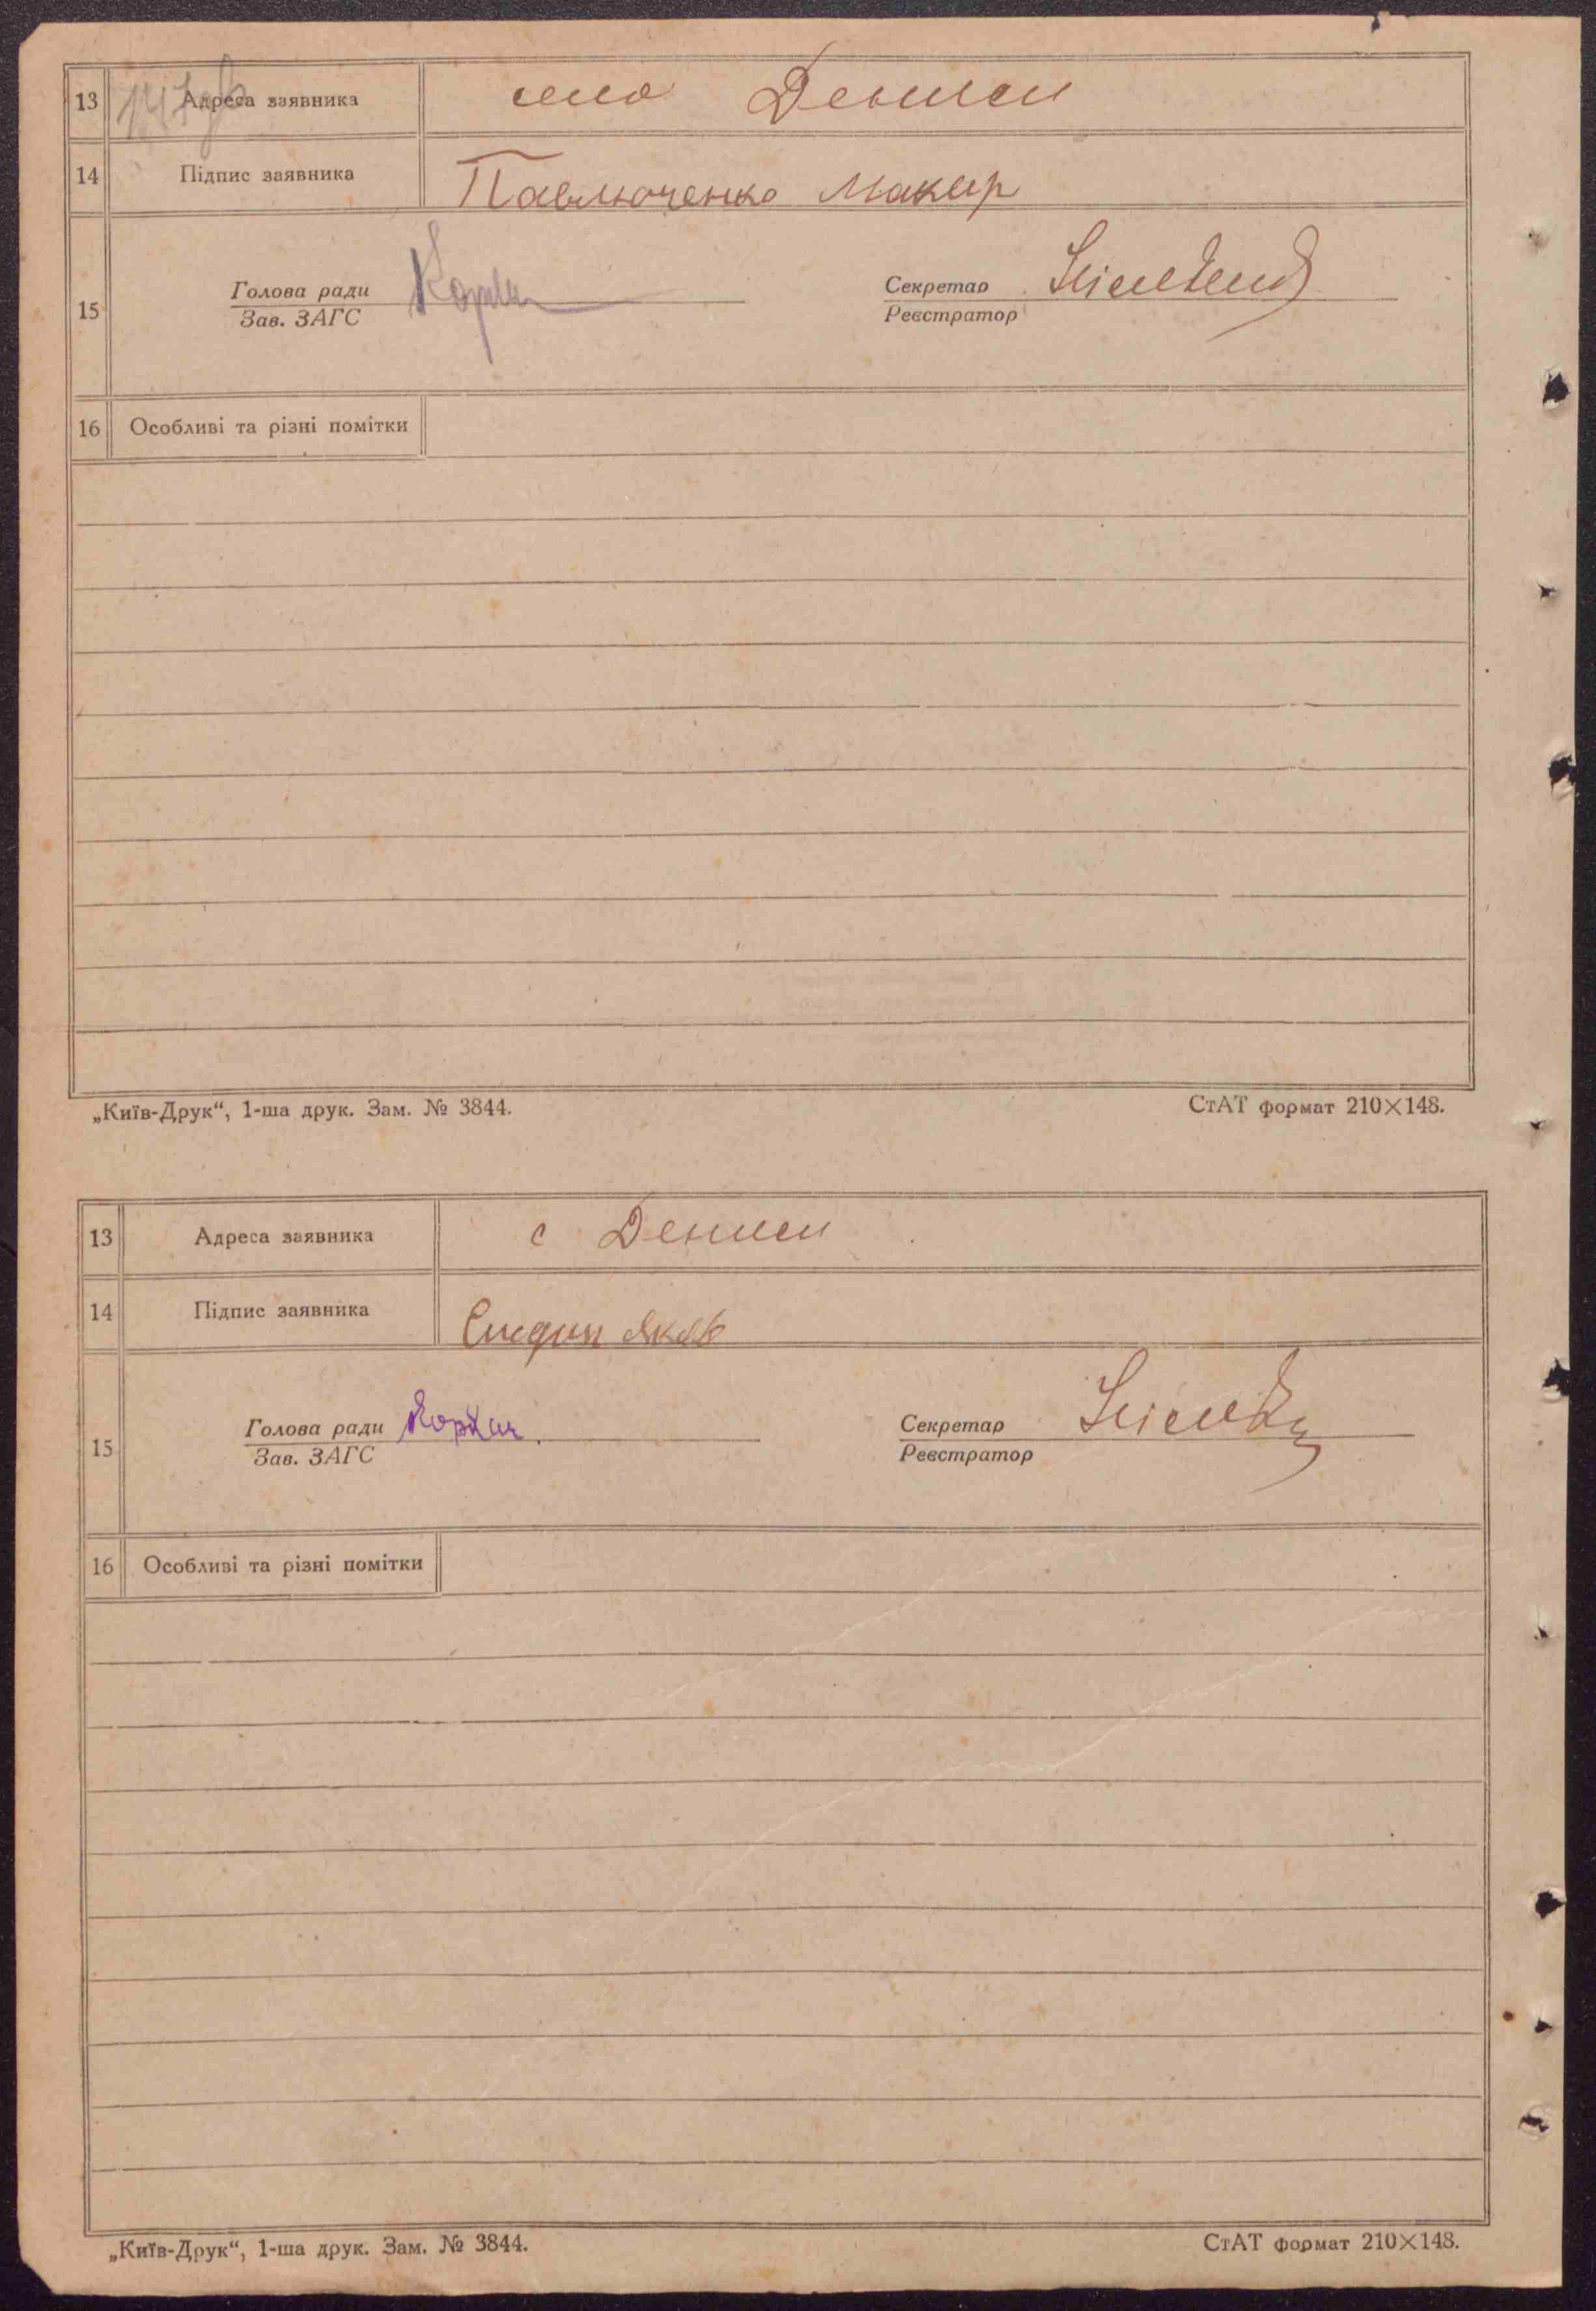 13 Адреса заявника село Дениси
14 Підпис заявника Павлюченко Макар
15 Голова ради Зав. ЗАГС Секретар Реєстратор
16 Особливі та різні помітки
„Київ-Друк“, 1-ша друк. Зам. № 3844. СтАТ формат 210×148.
13 Адреса заявника с Дениси
14 Підпис заявника Яків
15 Голова ради Зав. ЗАГС Коржич Секретар Реєстратор
16 Особливі та різні помітки
„Київ-Друк“, 1-ша друк. Зам. № 3844. СтАТ формат 210×148.